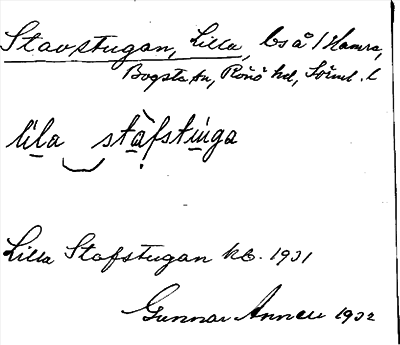 Stavstugan, Lilla, bs å / Hamra,
Bogsta sn, Rönö hd, Sörml. l
lila stafstuga
Lilla Stafstugan kb. 1931
Gunnar 1932